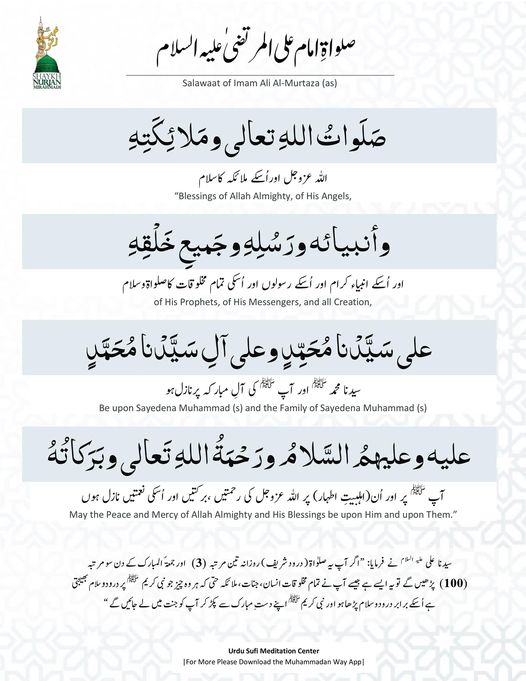 SHAYKH
NURJAN
MIRAHMADI
صلواۃِ امام علی المرتضیٰ علیہ السلام
Salawaat of Imam Ali Al-Murtaza (as)
صَلَواتُ اللهِ تعالى ومَلائِكَتِهِ
اللہ عزوجل اور اُسکے ملائکہ کا سلام
“Blessings of Allah Almighty, of His Angels,
وأنبيائه ورَسُلِهِ وجَميعِ خَلْقِهِ
اور اُسکے انبیاء کرام اور اُسکے رسولوں اور اُسکی تمام مخلوقات کا صلواۃ وسلام
of His Prophets, of His Messengers, and all Creation,
على سَيَّدْنا مُحَمِّدٍ وعلى آلِ سَيَّدْنا مُحَمَّدٍ
سیدنا محمد ﷺ اور آپ ﷺ کی آلِ مبارکہ پر نازل ہو
Be upon Sayedena Muhammad (s) and the Family of Sayedena Muhammad (s)
عليه وعليهمُ السَّلامُ ورَحْمَةُ اللهِ تَعالى وبَرَكاتُهُ
آپ ﷺ پر اور اُن (اہلبیتِ اطہار) پر اللہ عزوجل کی رحمتیں، برکتیں اور اُسکی نعمتیں نازل ہوں
May the Peace and Mercy of Allah Almighty and His Blessings be upon Him and upon Them.”
سیدنا علی علیہ السلام نے فرمایا: "اگر آپ یہ صلواۃ (درود شریف) روزانہ تین مرتبہ (3) اور جمعۃ المبارک کے دن سو مرتبہ
(100) پڑھیں گے تو یہ ایسے ہے جیسے آپ نے تمام مخلوقات انسان، جنات، ملائکہ حتی کہ ہر وہ چیز جو نبی کریم ﷺ پر درود و سلام بھیجتی
ہے اُسکے برابر درود و سلام پڑھا ہو اور نبی کریم ﷺ اپنے دستِ مبارک سے پکڑ کر آپ کو جنت میں لے جائیں گے "
Urdu Sufi Meditation Center
|For More Please Download the Muhammadan Way App|